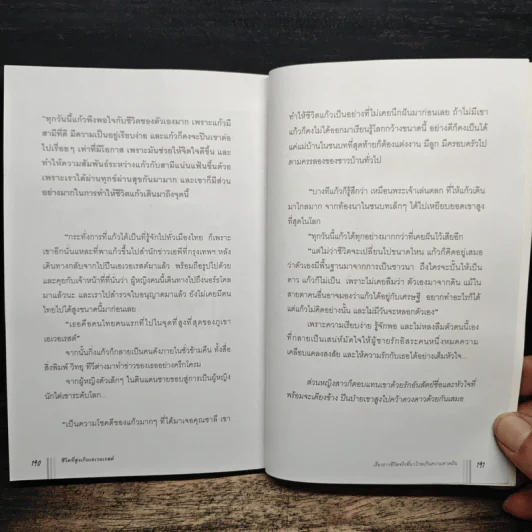 "ทุกวันนี้แก้วพึงพอใจกับชีวิตของตัวเองมาก เพราะแก้วมี
สามีที่ดี มีความเป็นอยู่เรียบง่าย และแก้วก็คงจะปีนเขาต่อ
ไปเรื่อยๆ เท่าที่มีโอกาส เพราะมันช่วยให้จิตใจดีขึ้น และ
ทำให้ความสัมพันธ์ระหว่างแก้วกับสามีแน่นแฟ้นขึ้นด้วย
เพราะเราได้ผ่านทุกข์ผ่านสุขกันมามาก และเขาก็มีส่วน
อย่างมากในการทำให้ชีวิตแก้วเดินมาถึงจุดนี้
"กระทั่งการที่แก้วได้เป็นที่รู้จักไปทั่วเมืองไทย ก็เพราะ
เขาอีกนั่นแหละที่พาแก้วขึ้นไปสำนักข่าวเอพีที่กรุงเทพฯ หลัง
เดินทางกลับจากไปปีนเอเวอเรสต์มาแล้ว พร้อมถือรูปไปด้วย
และคุยกับเจ้าหน้าที่ที่นั่นว่า ผู้หญิงคนนี้เดินทางไปถึงนอร์ธโคล
มาแล้วนะ และเราไปสำรวจใบอนุญาตมาแล้ว ยังไม่เคยมีคน
ไทยไปได้สูงขนาดนี้มาก่อนเลย
"เธอคือคนไทยคนแรกที่ไปในจุดที่สูงที่สุดของภูเขา
เอเวอเรสต์"
จากนั้นกิ่งแก้วก็กลายเป็นคนดังภายในชั่วข้ามคืน ทั้งสื่อ
สิ่งพิมพ์ วิทยุ ทีวีต่างมาทำข่าวของเธออย่างครึกโครม
จากผู้หญิงตัวเล็กๆ ในดินแดนชายขอบสู่การเป็นผู้หญิง
นักไต่เขาระดับโลก...
"เป็นความโชคดีของแก้วมากๆ ที่ได้มาเจอคุณชาลี เขา
190
ชีวิตที่สูงเกินเอเวอเรสต์
ทำให้ชีวิตแก้วเป็นอย่างที่ไม่เคยนึกฝันมาก่อนเลย ถ้าไม่มีเขา
แก้วก็คงไม่ได้ออกมาเรียนรู้โลกกว้างขนาดนี้ อย่างดีก็คงเป็นได้
แค่แม่บ้านในชนบทที่สุดท้ายก็ต้องแต่งงาน มีลูก มีครอบครัวไป
ตามครรลองของชาวบ้านทั่วไป
"บางทีแก้วก็รู้สึกว่า เหมือนพระเจ้าเล่นตลก ที่ให้แก้วเดิน
มาไกลมาก จากท้องนาในชนบทเล็กๆ ได้ไปเหยียบยอดเขาสูง
ที่สุดในโลก
"ทุกวันนี้แก้วได้ทุกอย่างมากกว่าที่เคยฝันไว้เสียอีก
"แต่ไม่ว่าชีวิตจะเปลี่ยนไปขนาดไหน แก้วก็คิดอยู่เสมอ
ว่าตัวเองมีพื้นฐานมาจากการเป็นชาวนา ถึงใครจะปั้นให้เป็น
ดาว แก้วก็ไม่เป็น เพราะไม่เคยลืมว่า ตัวเองมาจากดิน แม้ใน
สายตาคนอื่นอาจมองว่าแก้วได้อยู่กับเศรษฐี อยากทำอะไรก็ได้
แต่แก้วไม่คิดอย่างนั้น และไม่มีวันจะหลอกตัวเอง"
เพราะความเรียบง่าย รู้จักพอ และไม่หลงลืมตัวตนนี้เอง
ที่กลายเป็นเสน่ห์มัดใจให้ผู้ชายรักอิสระคนหนึ่งหมดความ
เคลือบแคลงสงสัย และให้ความรักกับเธอได้อย่างเต็มหัวใจ...
ส่วนหญิงสาวก็ตอบแทนเขาด้วยรักอันสัตย์ซื่อและหัวใจที่
พร้อมจะเคียงข้าง ปีนป่ายเขาสูงไปคว้าดวงดาวด้วยกันเสมอ
191